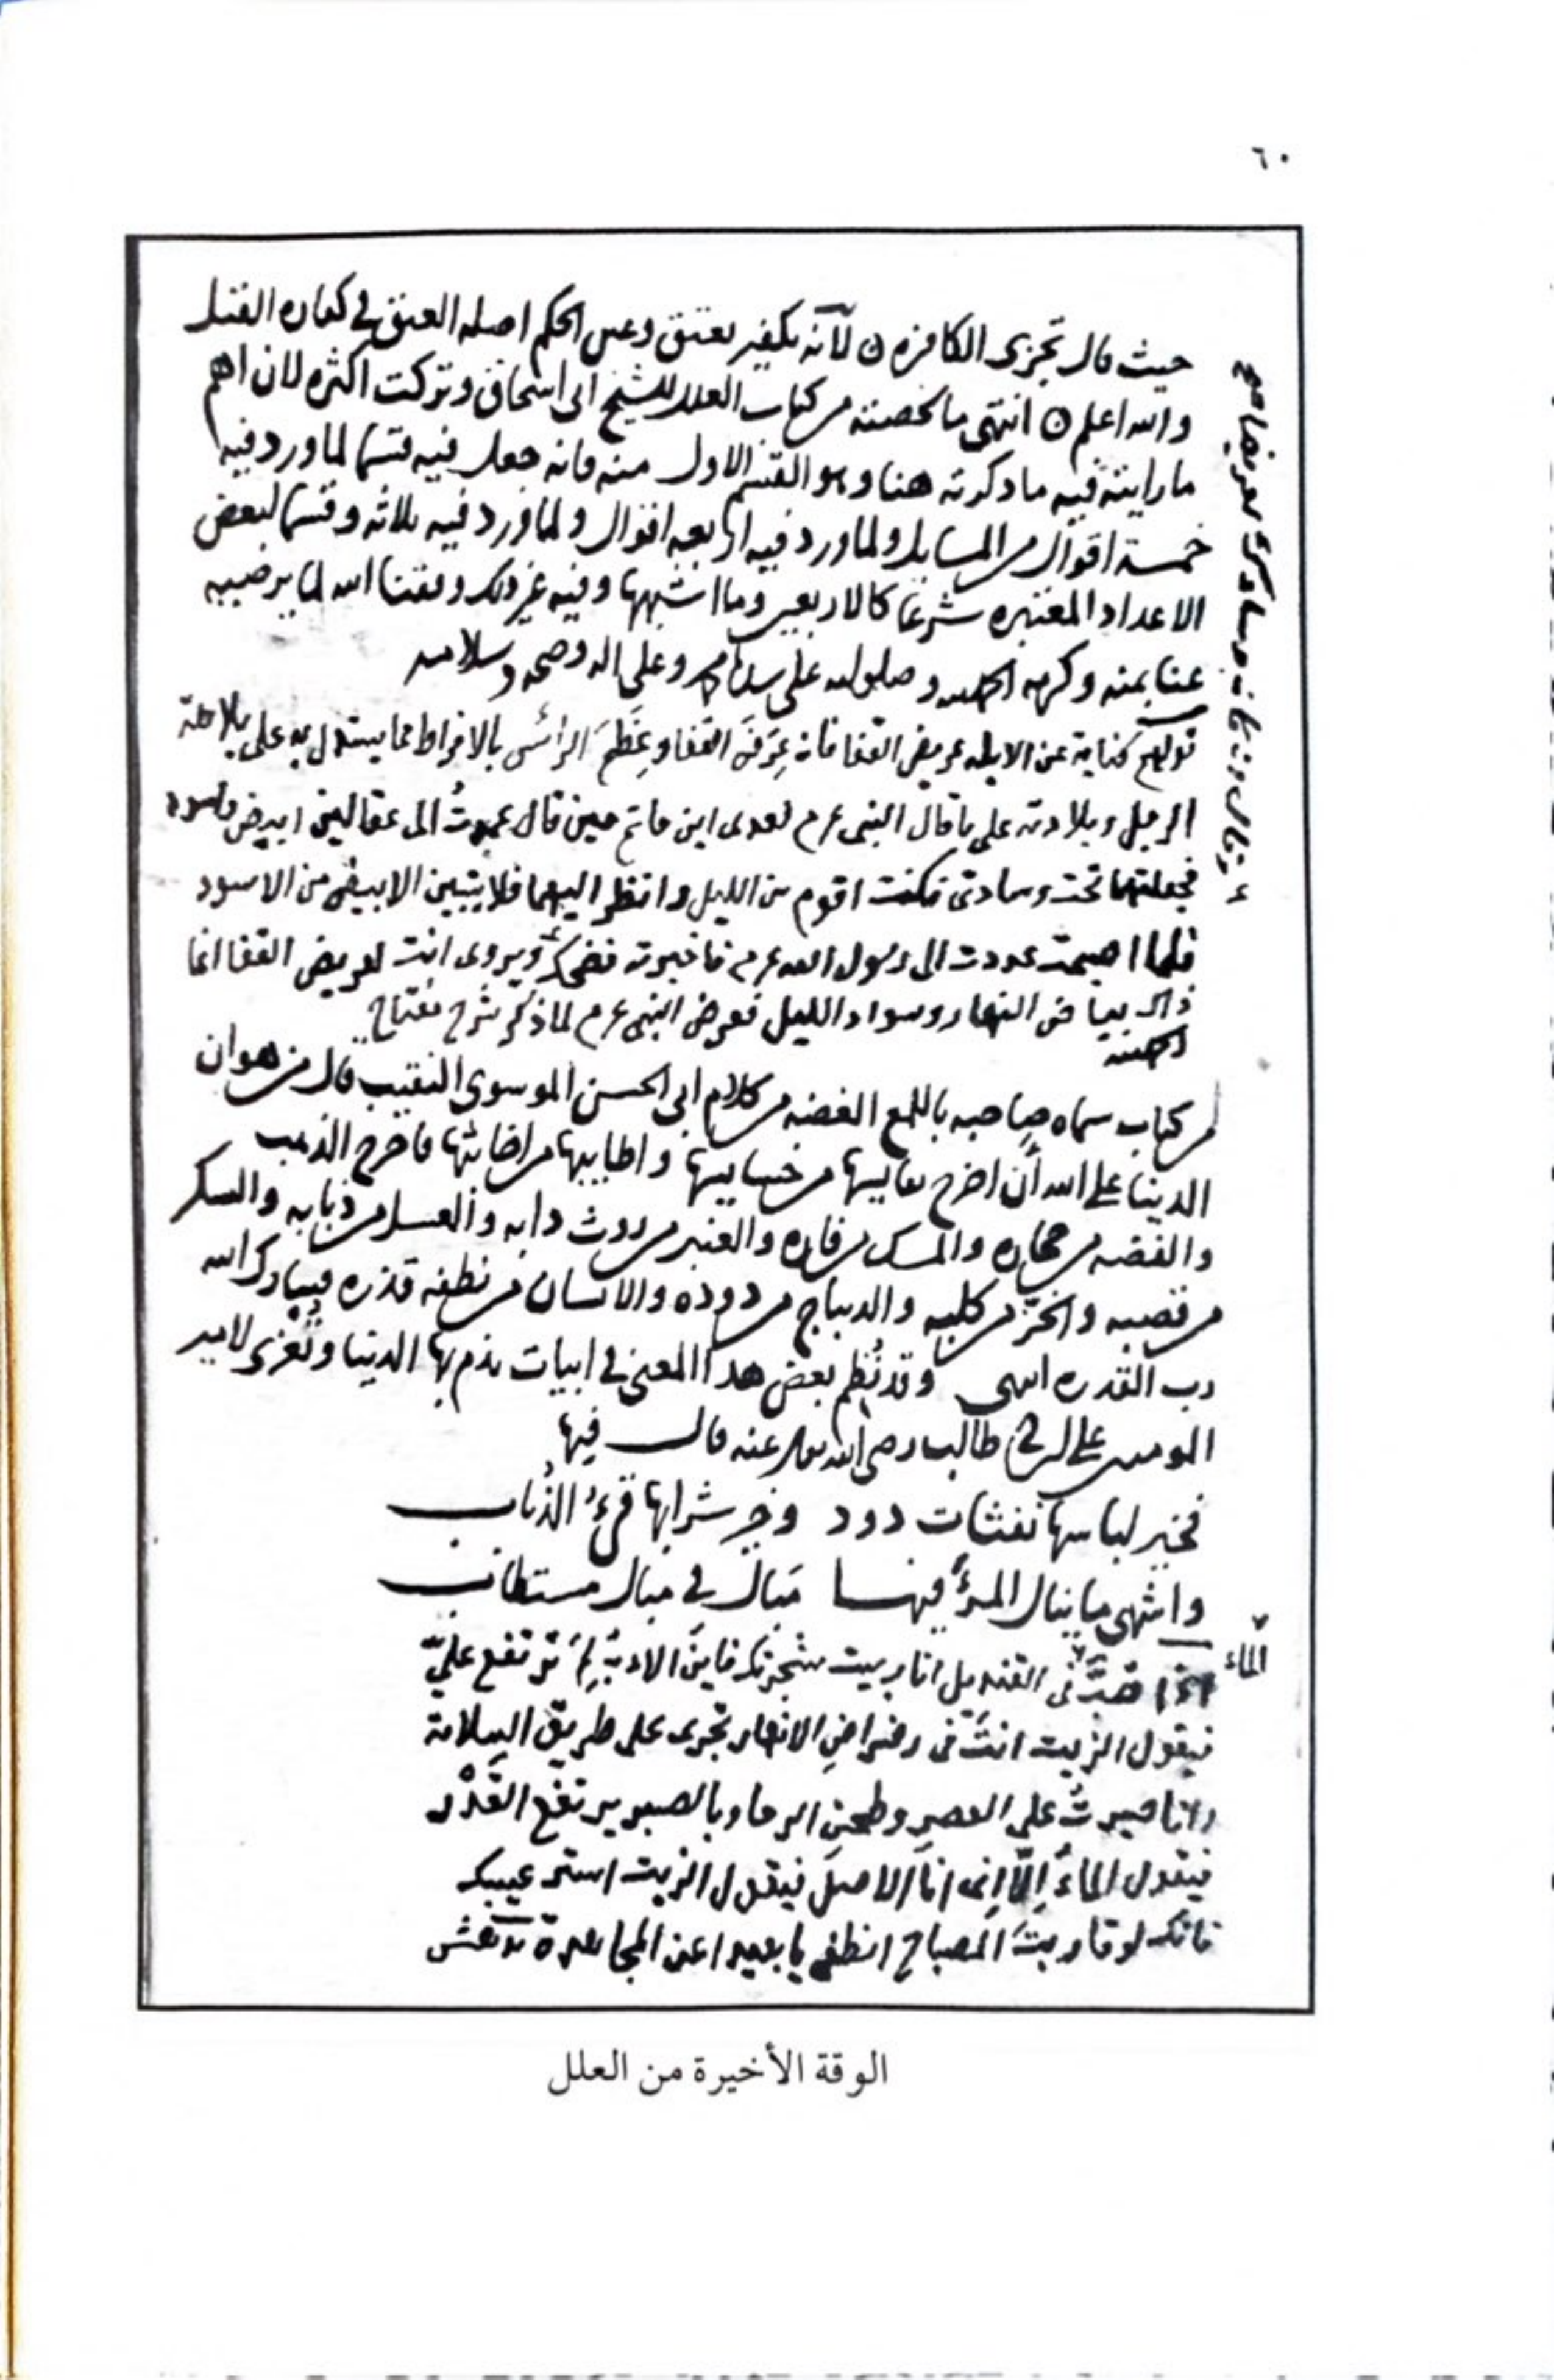 ٦٠
حيث قال تجزى الكافره لانه تكفير بعتق وعن الحكم اصله العتق في كفاره القتل
والله اعلم انتهى ما لخصته من كتاب العلل للشيخ ابى اسحاق وتركت اكثره لان اهم
ما رايته فيه ما ذكرته هنا وهو القسم الاول منه فانه جعل فيه قسما لما ورد فيه
خمسة اقوال من المسايل ولما ورد فيه اربعه اقوال ولما ورد فيه ثلاثه وقسما لبعض
الاعداد المعتبره شرعا كالاربعين وما اشبهها وفيه غير ذلك وفقنا الله لما يرضيه
عنا بمنه وكرمه امين وصلى الله على سيدنا محمد وعلى اله وصحبه وسلامه
قولهم كناية عن الابله عريض القفا فان عِرَضَ القفا وعِظَمَ الرأس بالافراط مما يستدل به على بلاهة
الرجل وبلادته على ما قال النبى عم لعدى ابن حاتم حين قال عمدتُ الى عقالين ابيض واسود
فجعلتهما تحت وسادتى فكنت اقوم من الليل وانظر اليهما فلا يتبين الابيض من الاسود
فلما اصبحت غدوت الى رسول الله عم فاخبرته فضحك ويروى انت لعريض القفا انما
ذاك بياض النهار وسواد الليل فعرض النبى عم لما ذكر شرح مفتاح
من كتاب سماه صاحبه باللمع الفضه من كلام ابى الحسن الموسوى النقيب قال من هوان
الدنيا على الله أن اخرج نفايسها من خسايسها واطايبها من اخابثها فاخرج الذهب
والفضه من حجاره والمسك من فاره والعنبر من روث دابه والعسل من ذبابه والسكر
من قصبه والخز من كلبه والديباج من دوده والانسان من نطفه قذره فتبارك الله
رب القدره انتهى وقد نُظم بعض هذا المعنى في ابيات يذم بها الدنيا وتُعْزى لامير
المومنين على بن ابي طالب رضي الله تعالى عنه قال فيها
فخير لباسها نفثات دود وخير شرابها قيءُ الذُباب
واشهى ما ينال المرءُ فيها مَبال في مبال مستطاب
الماء
اذا صبّ فى القنديل انا ربيت شجرتك فاين الادبُ لِمَ ترتفع عليّ
فيقول الزيت انتَ فى رضراض الانهار تجرى على طريق السلامة
وانا صبرتُ على العصر وطحن الرحا وبالصبر يرتفع القَدْر
فيقول الماءُ اِلّا اِنى اناَ الاصلَ فيقول الزيت استر عيبك
فانك لو قاربتَ المصباح انطفى يا بعيدا عن المجاهدة
الوقة الأخيرة من العلل